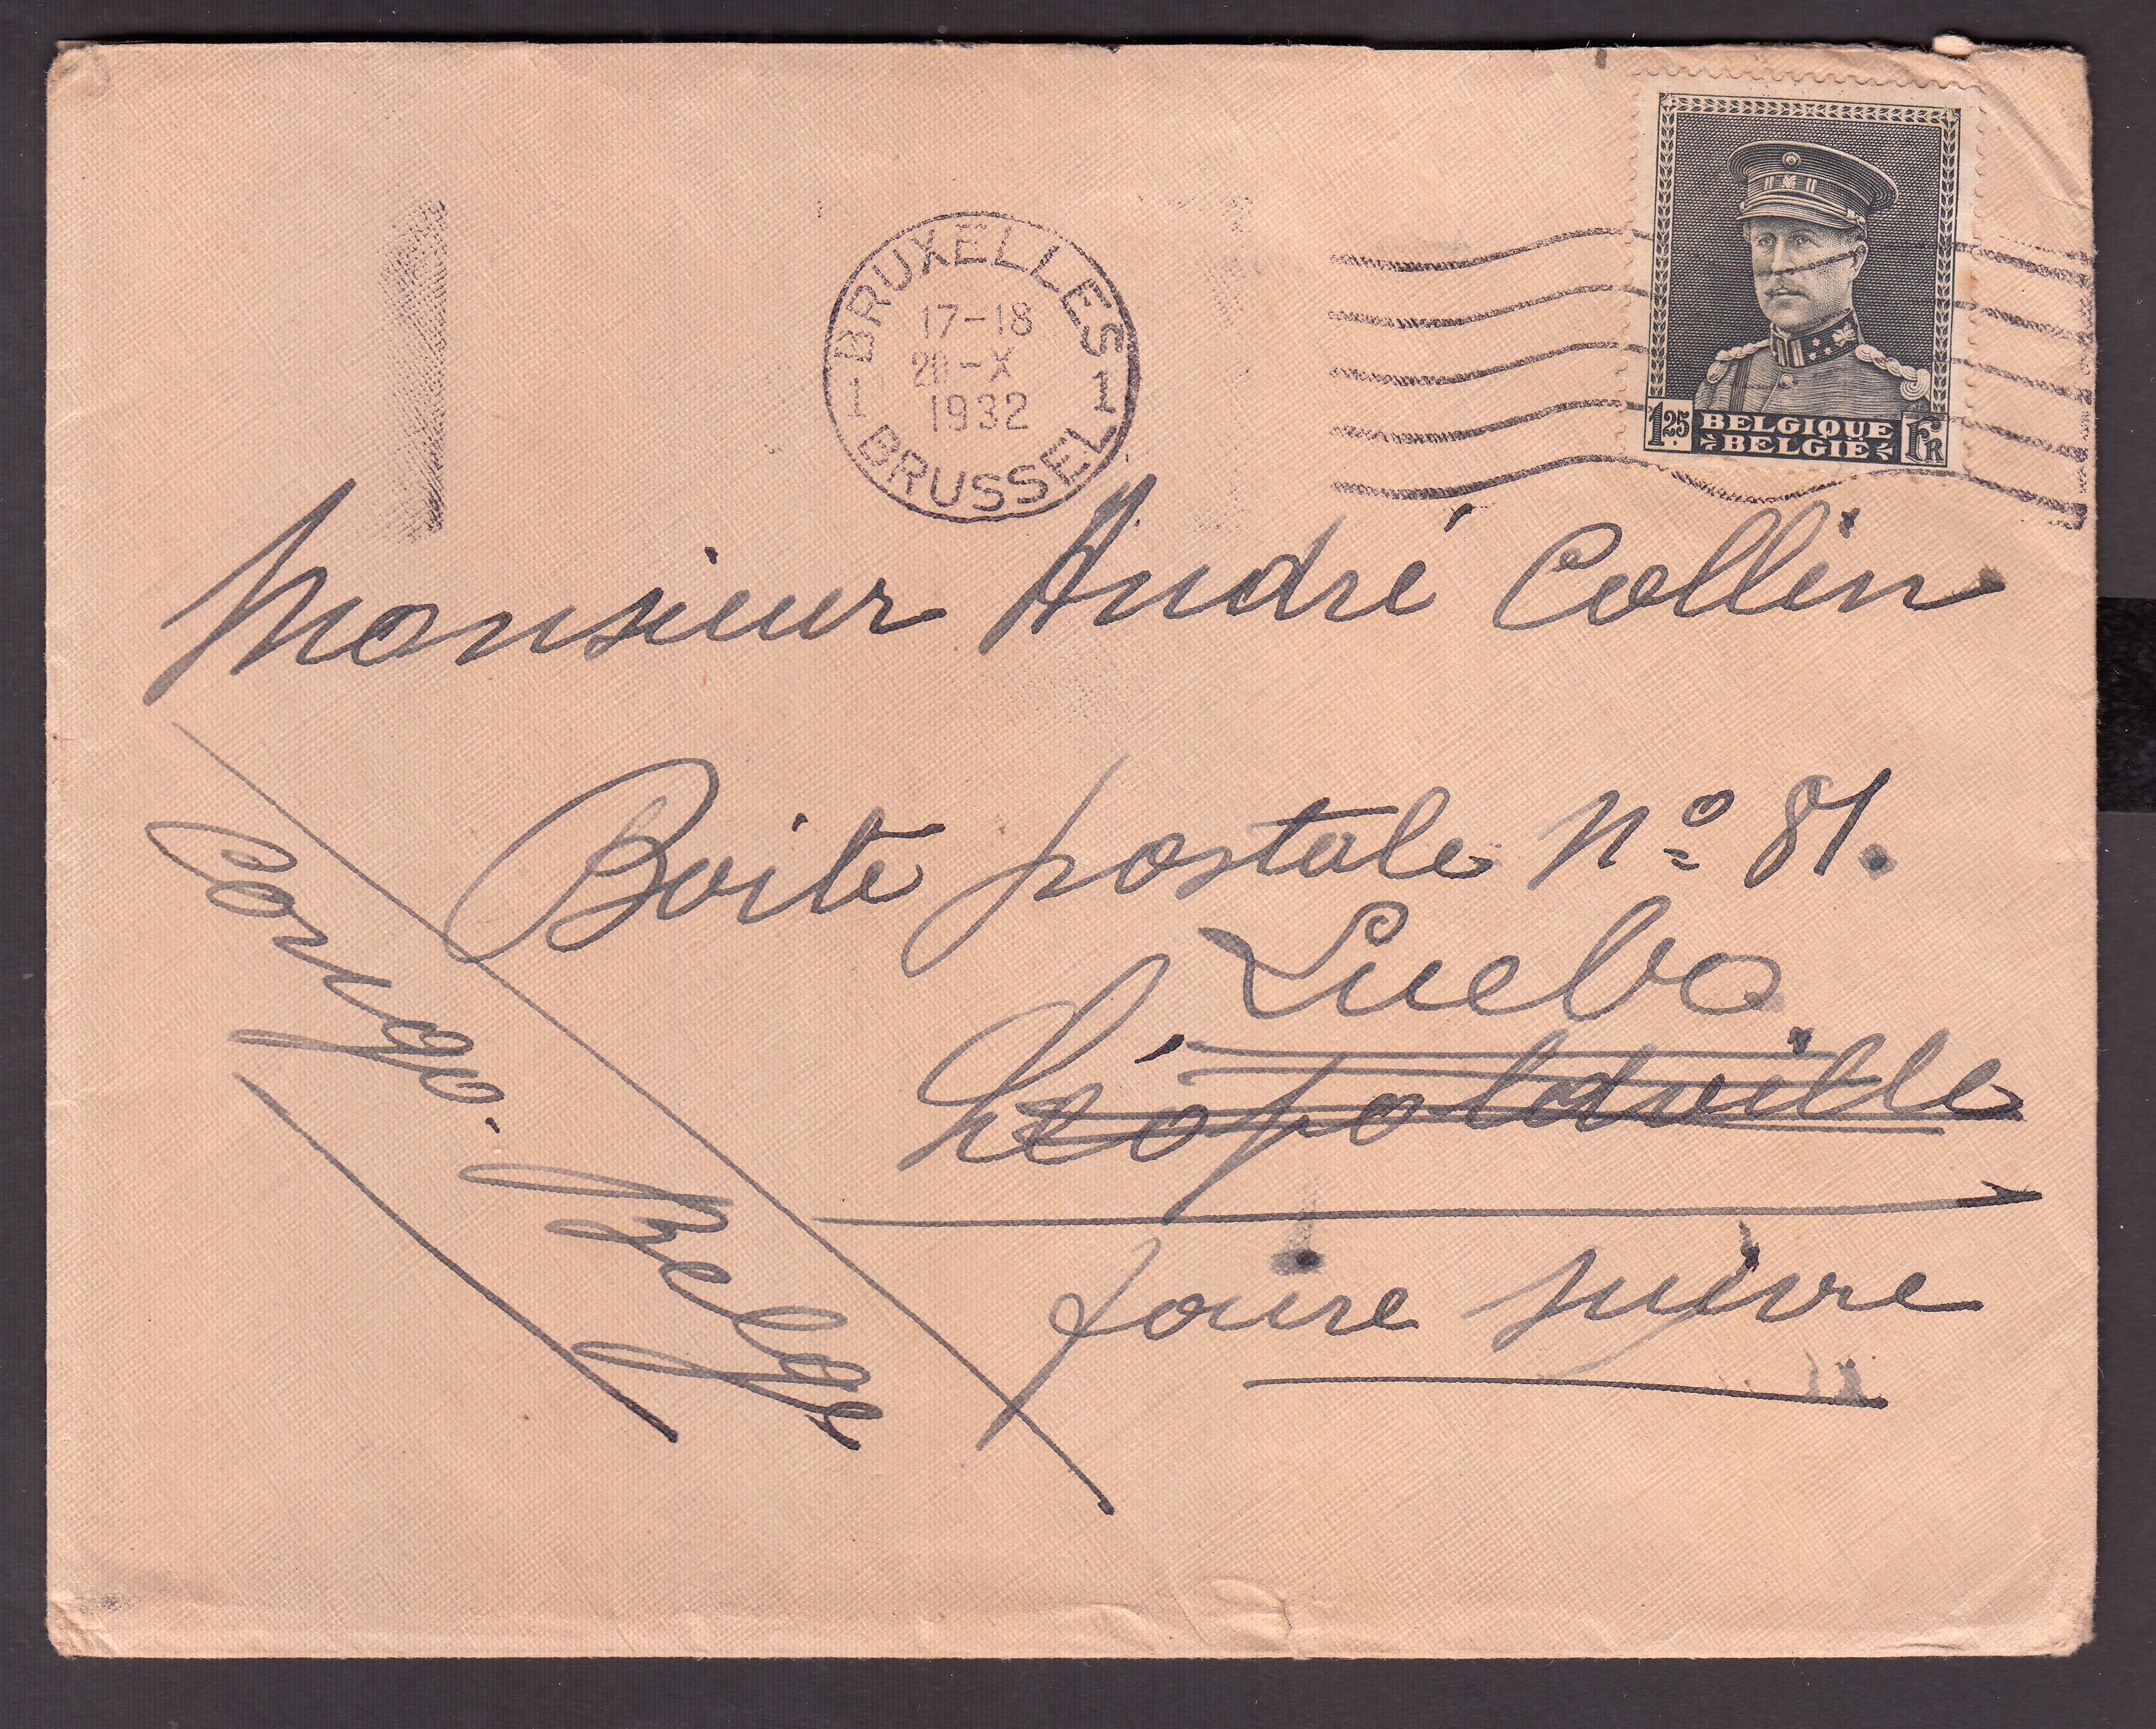 BRUXELLES
17-18
20-X
1932
1 1
BRUSSEL
1.25 BELGIQUE FR
BELGIË
Monsieur André Collin
Boite postale Nº 81.
Luebo
Léopoldville
faire suivre
Congo. Belge